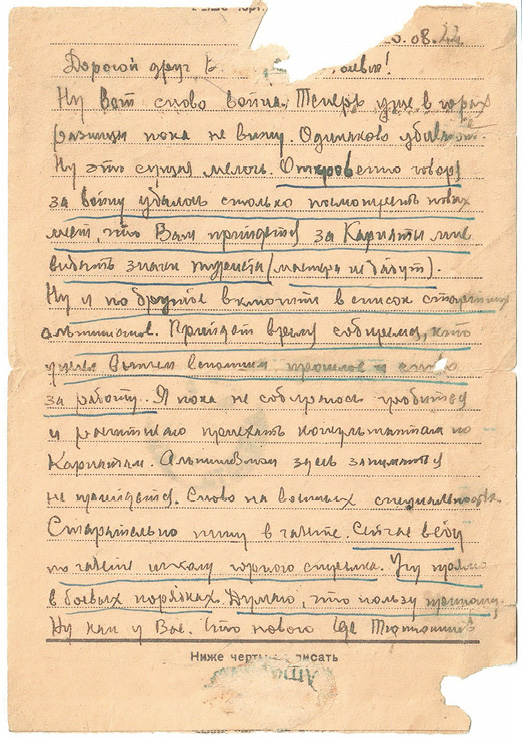 0.08.44
Дорогой друг В
Ну вот снова война. Теперь уже в горах
разницы пока не вижу. Одинаково убивают.
Ну это сущая мелочь. Откровенно говоря
за войну удалось столько посмотреть новых
мест, что Вам придется за Карпаты мне
выдать значки туриста (мастера не дадут).
Ну и по дружбе включить в список старейших
альпинистов. Придет время соберемся, кто
уцелел Выпьем вспомним прошлое и снова
за работу. Я пока не собираюсь гробиться
и рассчитываю приехать консультантом по
Карпатам. Альпинизмом здесь заниматься
не приходится. Снова на военных специальностях.
Старательно пишу в газете. Сейчас веду
по газете школу горного стрелка. Учу прямо
в боевых порядках. Думаю, что пользу приношу.
Ну как у Вас. Что нового Где
Ниже черты писать